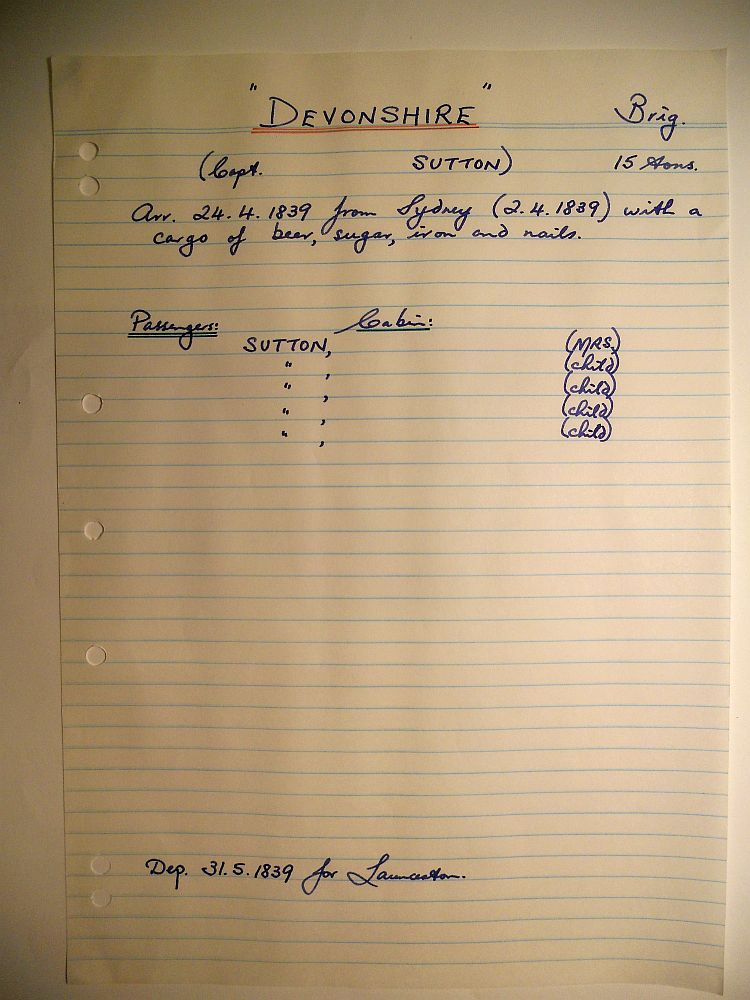 "DEVONSHIRE" Brig.
(Capt. SUTTON) 15 tons.
Arr. 24.4.1839 from Sydney (2.4.1839) with a
cargo of beer, sugar, iron and nails.
Passengers: Cabin:
SUTTON, (MRS.)
" , (child)
" , (child)
" , (child)
" , (child)
Dep. 31.5.1839 for Launceston.